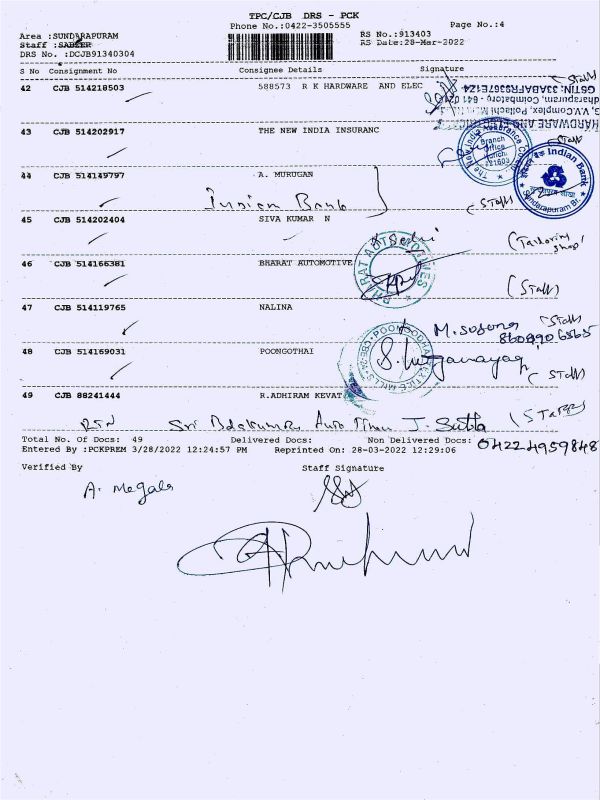 TPC/CJB DRS - PCK
Phone No.:0422-3505555
Page No.:4
Area :SUNDARAPURAM
RS No.:913403
Staff :SABEER
RS Date:28-Mar-2022
DRS No. :DCJB91340304
S No Consignment No Consignee Details Signature
42 CJB 514218503 588573 R K HARDWARE AND ELEC
GSTIN: 33ABAFR3367E1Z4
43 CJB 514202917 THE NEW INDIA INSURANC
The New India Assurance
Branch Office
Indian Bank
Sundarapuram Br.
44 CJB 514149797 A. MURUGAN
Indian Bank (Staff)
45 CJB 514202404 SIVA KUMAR N
(Tailoring shop)
46 CJB 514166381 BHARAT AUTOMOTIVE
BHARAT AUTOMOTIVES
(Staff)
47 CJB 514119765 NALINA
(Staff)
48 CJB 514169031 POONGOTHAI
(Staff)
49 CJB 88241444 R.ADHIRAM KEVAT
RTN Sri
(Staff)
Total No. Of Docs: 49 Delivered Docs: Non Delivered Docs:
04224959848
Entered By :PCKPREM 3/28/2022 12:24:57 PM Reprinted On: 28-03-2022 12:29:06
Verified By Staff Signature
A. Megala